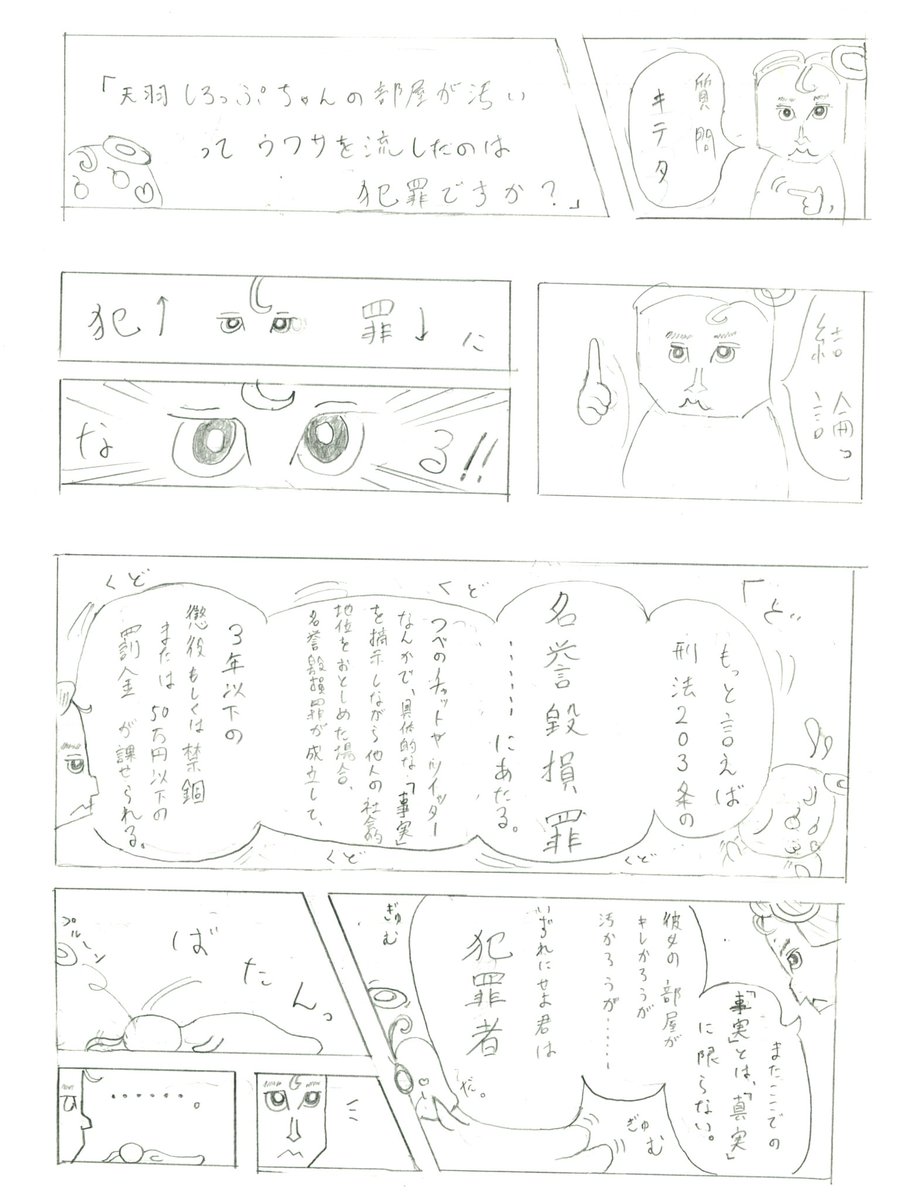 質問
キテタ
「天羽しろっぷちゃんの部屋が汚い
って ウワサを流したのは
犯罪ですか？」
結論っ
犯↑ 罪↓に
なる!!
ど
もっと言えば
刑法203条の
名誉毀損罪
………にあたる。
つべのチャットやツイッター
なんかで、具体的な「事実」
を摘示しながら他人の社会的
地位をおとしめた場合、
名誉毀損罪が成立して、
3年以下の
懲役もしくは禁錮
または50万円以下の
罰金が課せられる。
くど
くど
くど
くど
またここでの
「事実」とは、「真実」
に限らない。
彼女の部屋が
キレかろうが
汚かろうが………
いずれにせよ君は
犯罪者
だ。
ぎゅむ
ぎゅむ
ばたんっ
プルーン
……。